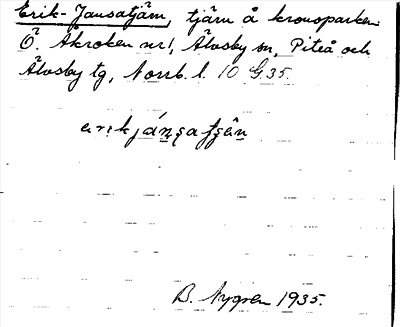 Erik-Jansatjärn, tjärn å kronoparken
Ö. Åkroken nr 1, Älvsby sn, Piteå och
Älvsby tg, Norrb. l. 10 G 35.
B. Nygren 1935.